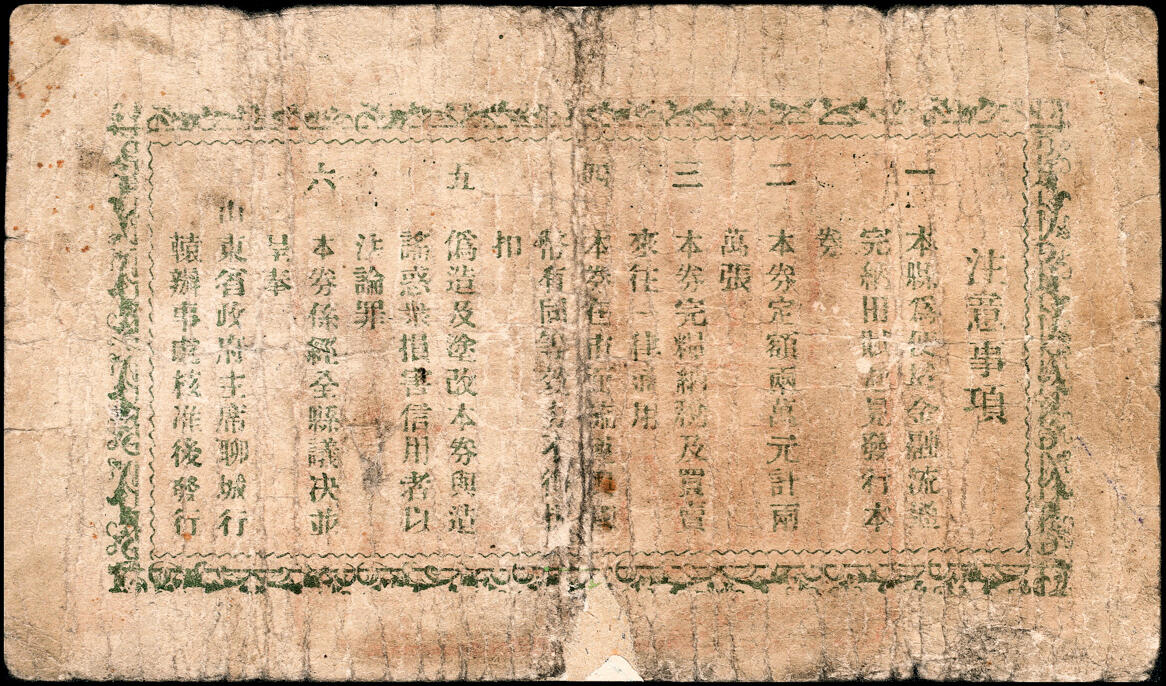 注意事項
一 本縣爲便於金融流通
完納田賦起見發行本
券
二 本券定額兩萬元計兩
萬張
三 本券完糧納稅及買賣
來往一律通用
四 本券在市面流通與國
幣有同等效力不得折
扣
五 僞造及塗改本券與造
謠惑衆損害信用者以
法論罪
六 本券係經全縣議决並
呈奉
山東省政府主席聊城行
轅辦事處核准後發行